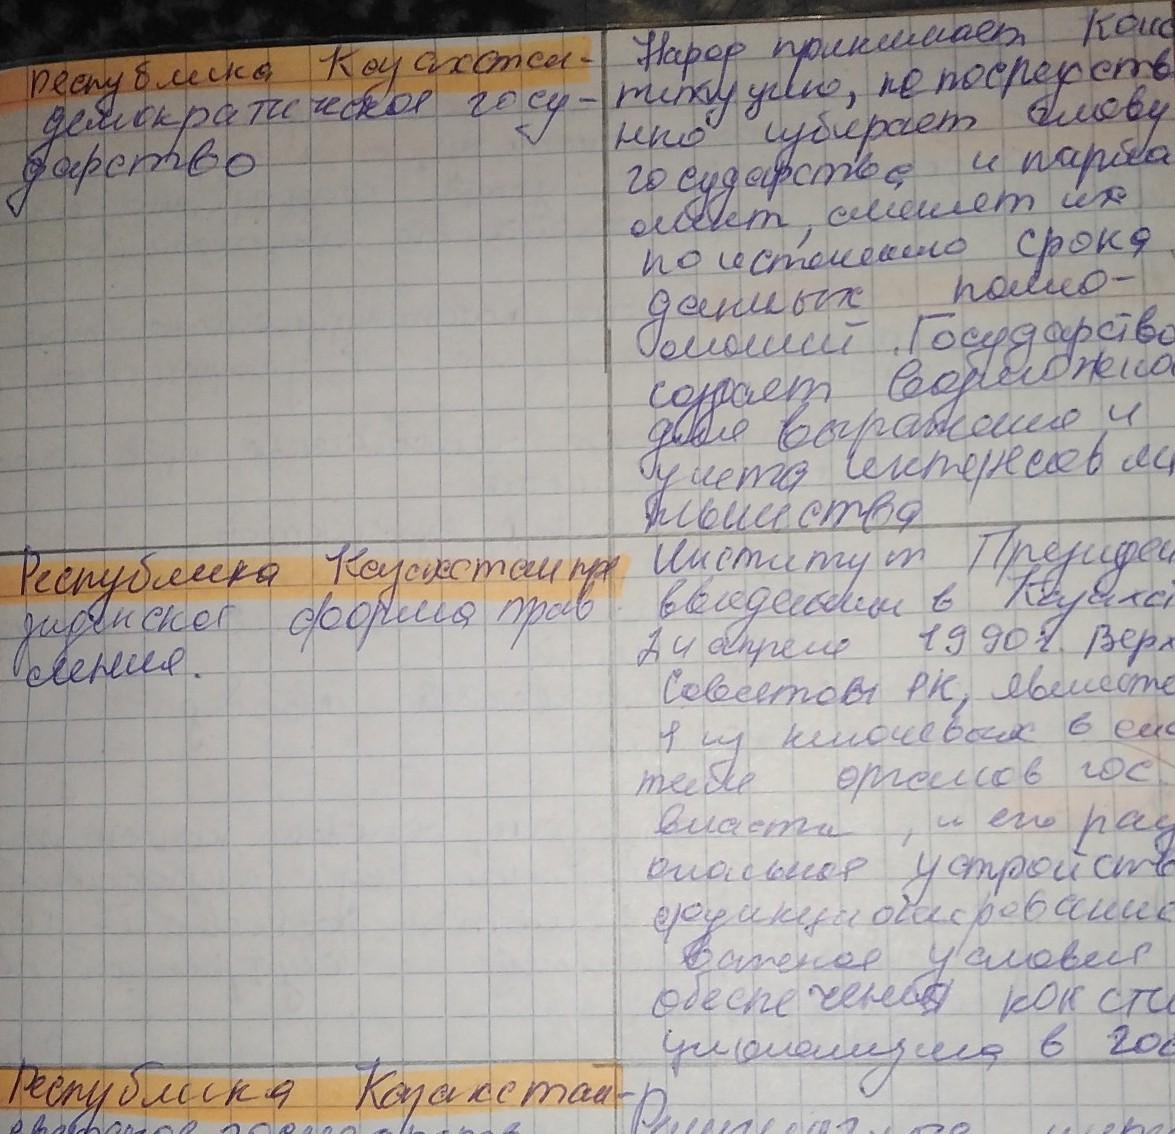 Республика Казахстан-
демократическое госу-
дарство
Народ принимает Конс
титуцию, непосредств
нно избирает главу
государства и парла
мент, сменяет их
по истечению срока
данных полно-
мочий. Государство
создает возможно
для выражения и
учета интересов м
ньшества
Республика Казахстан пре
зиденская форма прав
ления.
Институт Президен
введены в Казахс
24 апреля 1990 г. Верх
Советом РК, являетс
1 из ключевых в сис
теме органов гос
власти, и его рац
ональное устройст
функционирование
важное условия
обеспечения конст
уционализма в гос
Республика Казахстан-